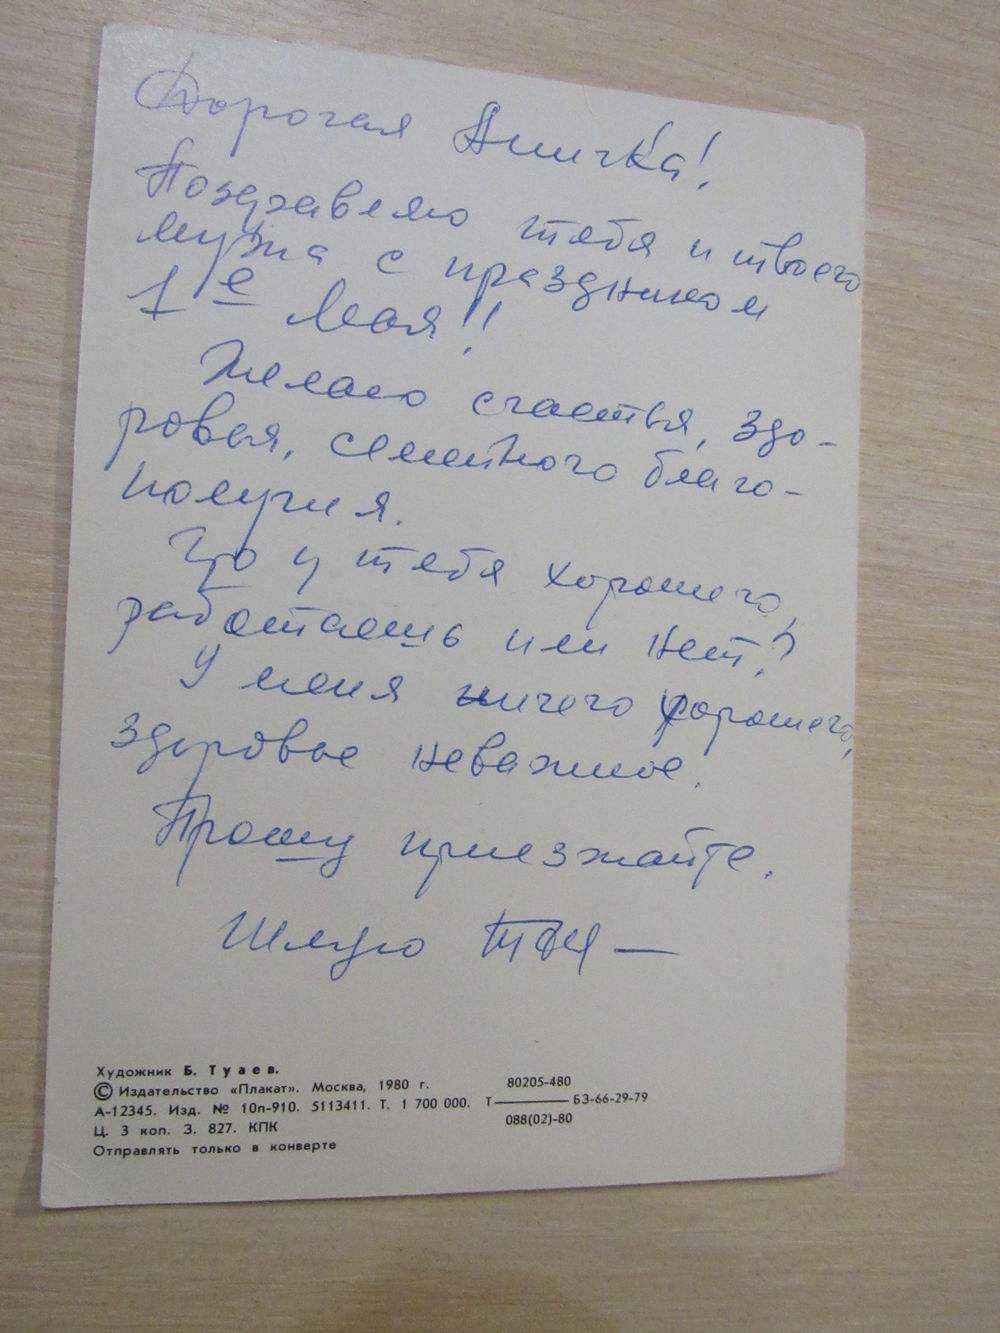 Дорогая Аничка!
Поздравляю тебя и твоего
мужа с праздником
1е Мая!!
Желаю счастья, здо-
ровья, семейного благо-
получия.
Что у тебя хорошего,
работаешь или нет?
У меня ничего хорошего,
здоровье неважное.
Прошу приезжайте.
Целую
Художник Б. Туаев.
© Издательство «Плакат». Москва, 1980 г.
А-12345. Изд. № 10п-910. 5113411. Т. 1 700 000. Т 80205-480 БЗ-66-29-79
088(02)-80
Ц. 3 коп. З. 827. КПК
Отправлять только в конверте